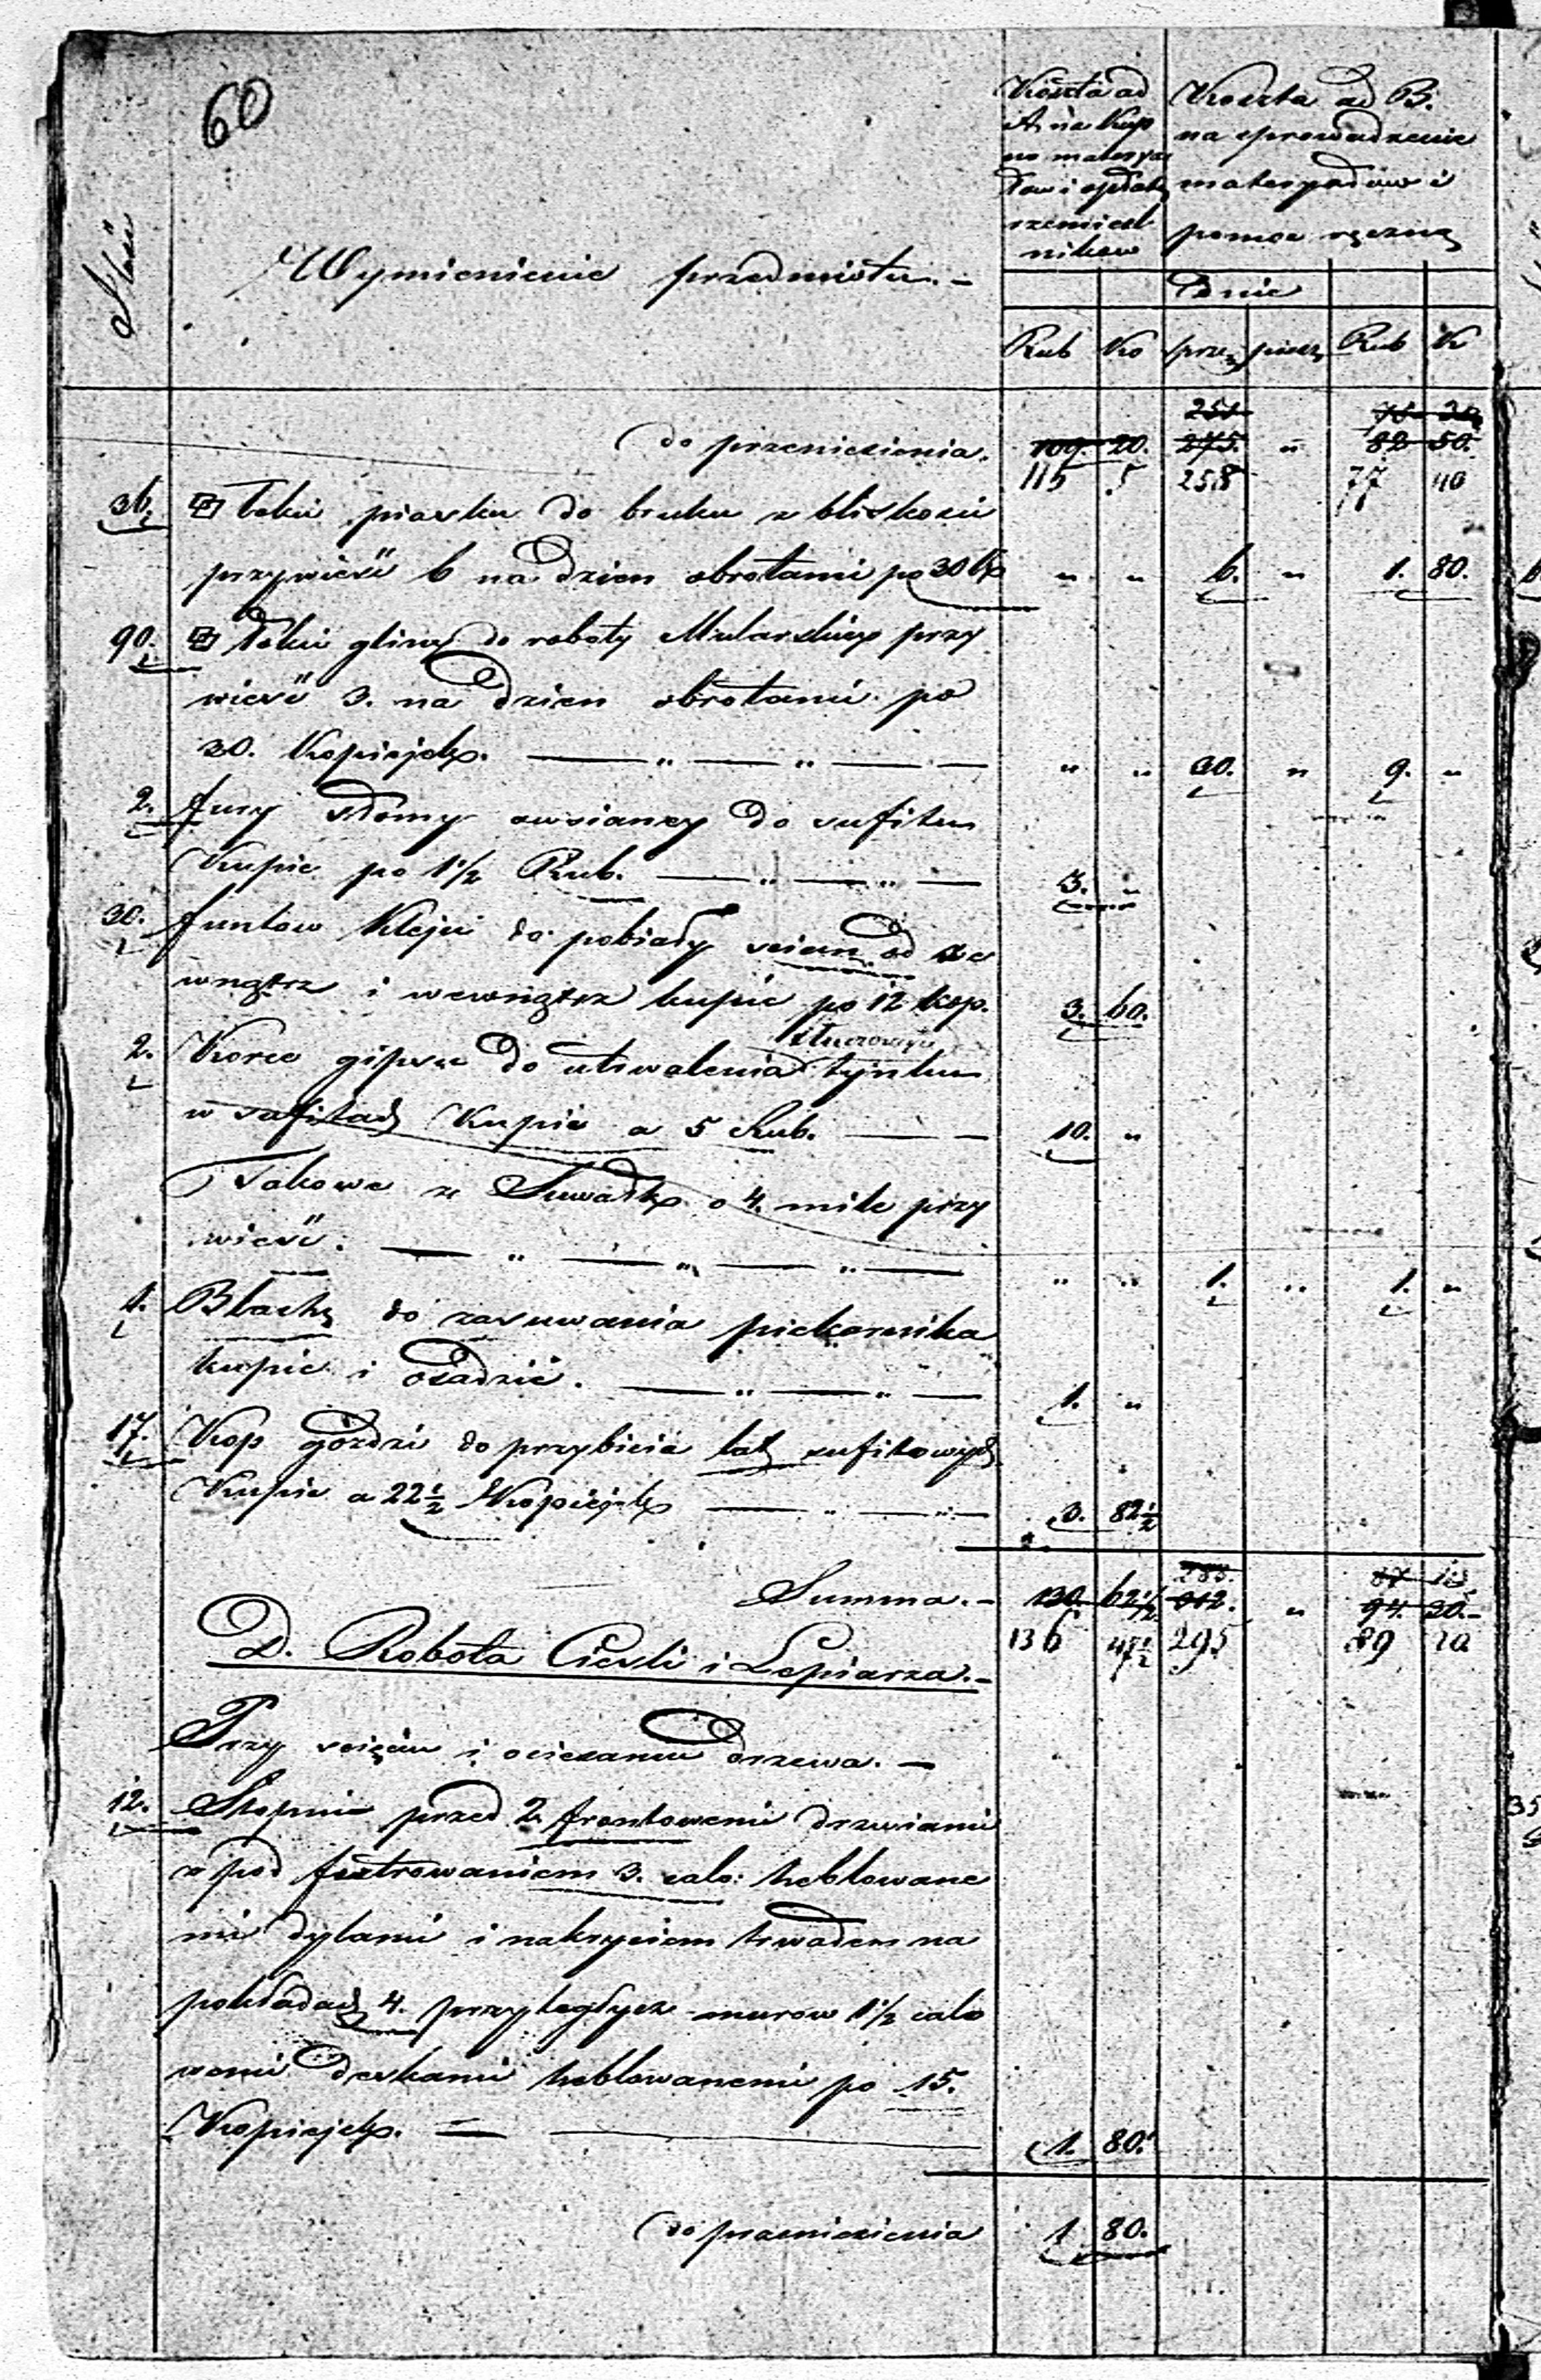 60
Ilość
Wymienienie przedmiotu. –
Koszta ad
A. na kup
no materya
łow i opłatę
rzemieśl
nikow
Koszta ad B.
na sprowadzenie
materyałów i
pomoc ręczną
Dnie
Rub Ko sprzę piesz Rub K
251 75 30
do przeniesienia. 109. 20. 275. " 82 50.
115 5 258 77 40
36. łokci piasku do bruku z bliskości
przywieść 6 na dzien obrotami po 30 Kp " " 6. " 1. 80.
90. łokci gliny do roboty Mularskiego przy
wieść 3. na dzien obrotami po
30. Kopiejek. — " — " — " " 30. " 9. "
2. fury słomy owsianey do sufitu
Kupic po 1 1/2 Rub. — " — " — 3. "
30. funtow kleju do pobiały scian od ze
wnątrz i wewnątrz kupic po 12 kop. 3. 60.
2. Korce gipsu do utrwalenia tynku
w sufitach Kupić a 5 Rub. — — 10. "
Takowe z Suwałk o 4. mile przy
wieść. — " — " — " — " " 1. " 1. "
1. Blachę do zasuwania piekarnika
kupic i osadzić. — " — " — 1. "
17. Kop goździ do przybicia łat sufitowych
Kupic a 22 1/2 Kopiejek — " — " — 3. 82 1/2
285. 87 10
Summa. – 130. 62 1/2 312. " 94. 30. –
136 47 1/2 295 89 20
D. Robota Ciesli i Lepiarza. –
Przy ścięciu i ociesaniu drzewa. –
12. Stopni przed 2. frontowemi drzwiami
z pod futrowaniem 3. calo: heblowane
mi dylami i nakryciem na
pokładach 4. przyległych murow 1 1/2 calo
wemi deskami heblowanemi po 15.
Kopiejek. — — 1. 80.
do przeniesienia 1 80.